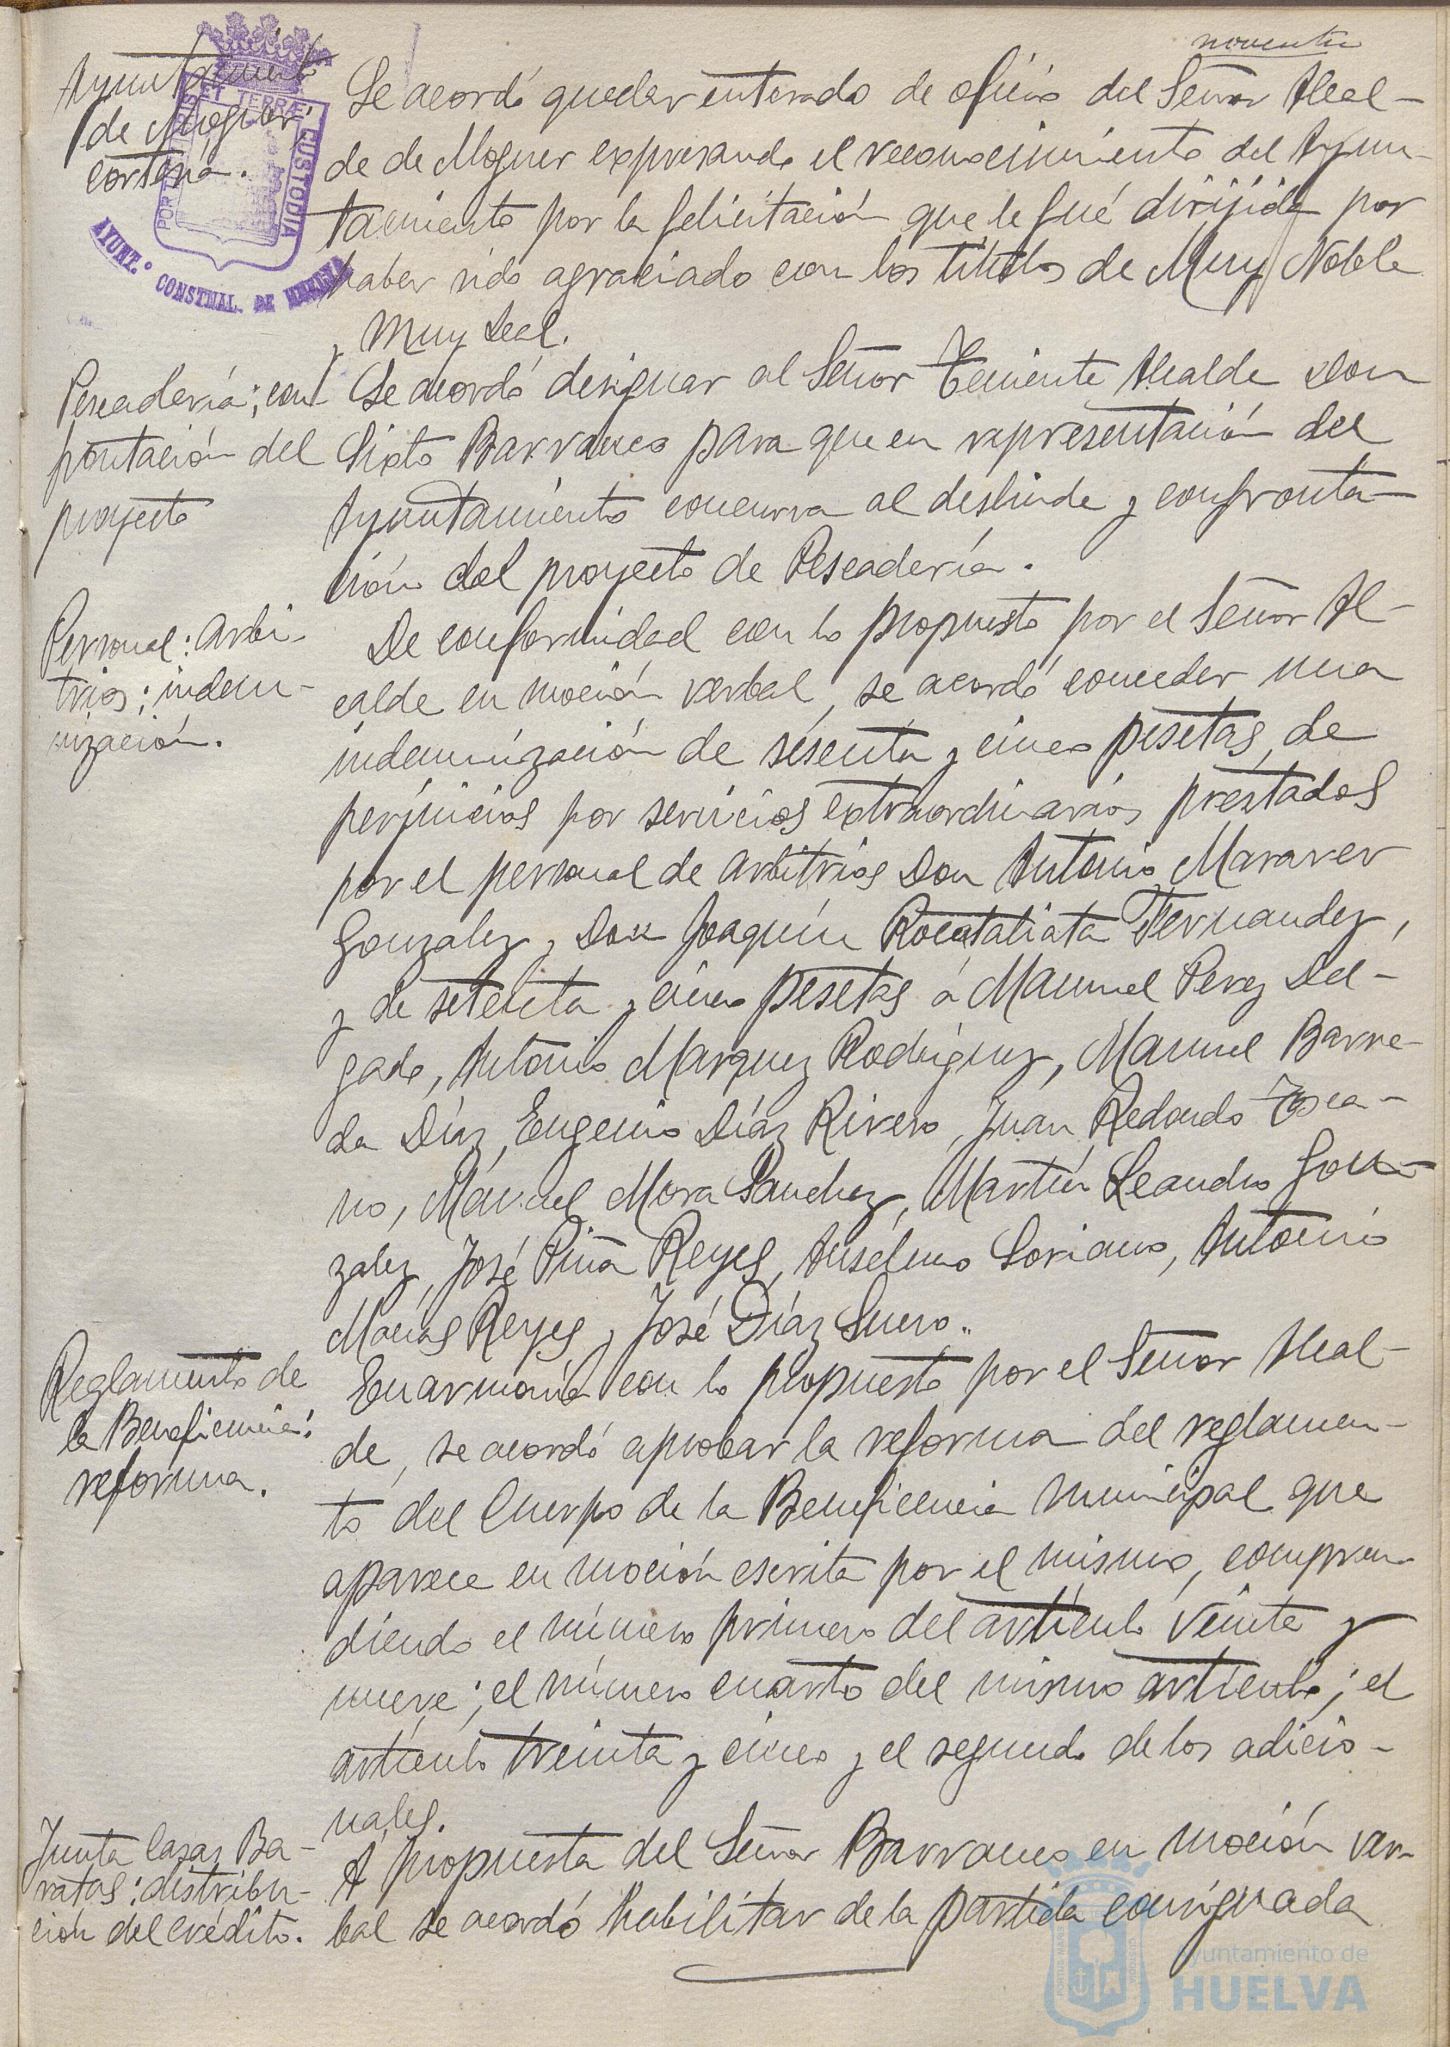 noventa
Ayuntamiento
de Moguer:
cortesía.
PORTUS MARIS ET TERRÆ CUSTODIA
AYUNT.º CONSTNAL. DE HUELVA
Se acordó quedar enterado de oficio del Señor Alcal-
de de Moguer expresando el reconocimiento del Ayun-
tamiento por la felicitación que le fué dirijida por
haber sido agraciado con los títulos de Muy Noble
y Muy Leal.
Pescadería; con-
frontación del
proyecto
Se acordó designar al Señor Teniente Alcalde Don
Sixto Barranco para que en representación del
Ayuntamiento concurra al deslinde y confronta-
ción del proyecto de Pescadería.
Personal: arbi-
trios; indem-
nización.
De conformidad con lo propuesto por el Señor Al-
calde en moción verbal, se acordó conceder una
indemnización de sesenta y cinco pesetas, de
perjuicios por servicios extraordinarios prestados
por el personal de arbitrios Don Antonio Maraver
Gonzalez y Don Joaquín Rocatallata Fernandez,
y de setenta y cinco pesetas á Manuel Perez Del-
gado, Antonio Marquez Rodríguez, Manuel Barre-
da Díaz, Eugenio Díaz Rivero, Juan Redondo Tosca-
no, Manuel Mora Sanchez, Martín Leandro Gon-
zalez, José Piña Reyes, Anselmo Soriano, Antonio
Macías Reyes y José Díaz Suero.
Reglamento de
la Beneficencia:
reforma.
En armonía con lo propuesto por el Señor Alcal-
de, se acordó aprobar la reforma del reglamen-
to del Cuerpo de la Beneficencia Municipal que
aparece en moción escrita por el mismo, compren-
diendo el número primero del artículo veinte y
nueve; el número cuarto del mismo artículo; el
artículo treinta y cinco y el segundo de los adicio-
nales.
Junta Casas Ba-
ratas: distribu-
ción del crédito.
A propuesta del Señor Barranco en moción ver-
bal se acordó habilitar de la partida consignada
Ayuntamiento de
HUELVA